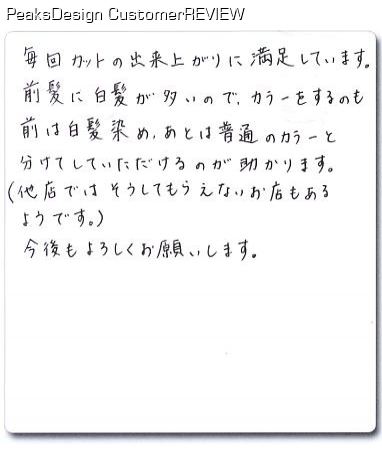 PeaksDesign CustomerREVIEW
毎回カットの出来上がりに満足しています。
前髪に白髪が多いので、カラーをするのも
前は白髪染め、あとは普通のカラーと
分けてしていただけるのが助かります。
(他店ではそうしてもらえないお店もある
ようです。)
今後もよろしくお願いします。